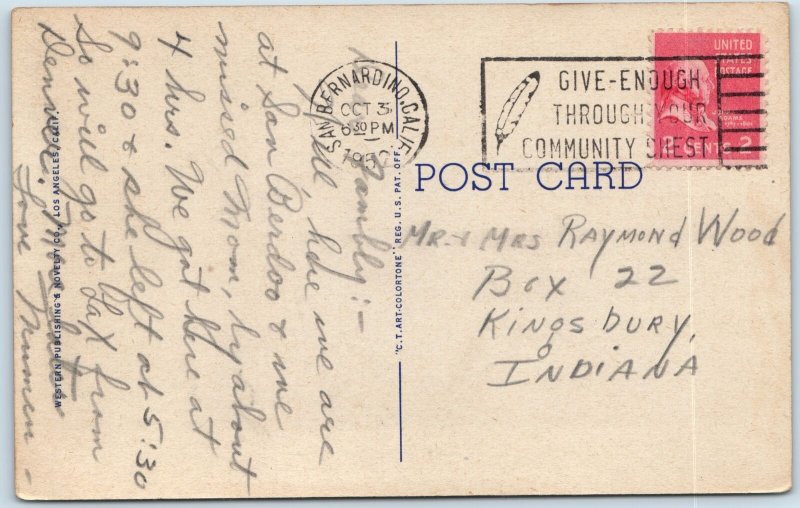 Dear Fambly:-
Well, here we are
at San Berdoo & we
missed Mom, by about
4 hrs. We got here at
9:30 & she left at 5:30
So will go to Lax from
Denver.
Love Mumen -
WESTERN PUBLISHING & NOVELTY CO., LOS ANGELES, CALIF.
"C.T. ART-COLORTONE" REG. U.S. PAT. OFF.
SAN BERNARDINO, CALIF.
OCT 3
6 30 PM
1952
GIVE-ENOUGH
THROUGH YOUR
COMMUNITY CHEST
UNITED
STATES
POSTAGE
JOHN
ADAMS
2 CENTS 2
POST CARD
MR & MRS RAYMOND WOOD
BOX 22
KINGSBURY,
INDIANA